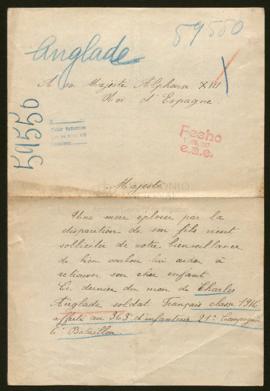 59550
Anglade
A sa Majesté Alphonse XIII
Roi d'Espagne
59550
Fecho
Majesté
Une mère éplorée par la
disparition de son fils vient
solliciter de votre bienveillance
de bien vouloir lui aider à
retrouver son cher enfant
Ce dernier du nom de Charles
Anglade soldat Français classe 1916
affecté au 363 d'infanterie 21e Compagnie
6e Bataillon